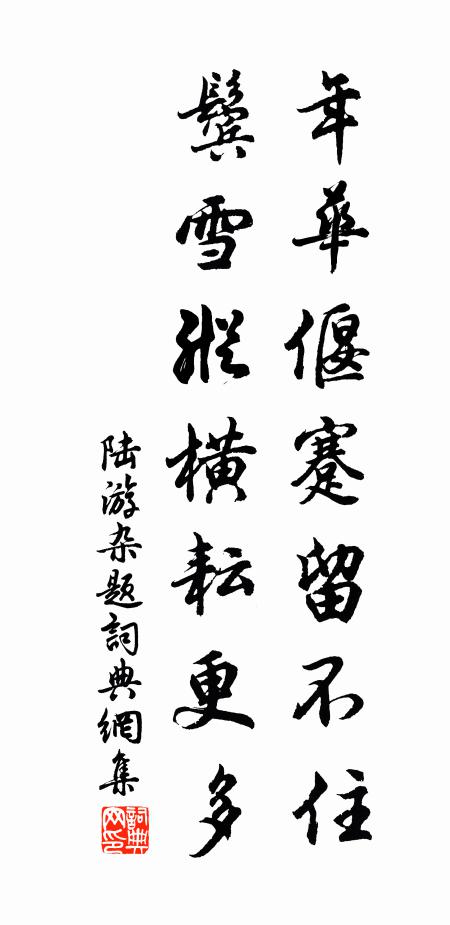 年華偃蹇留不住
鬢雪縱橫耘更多
陆游杂题詞典網集
詞典网印